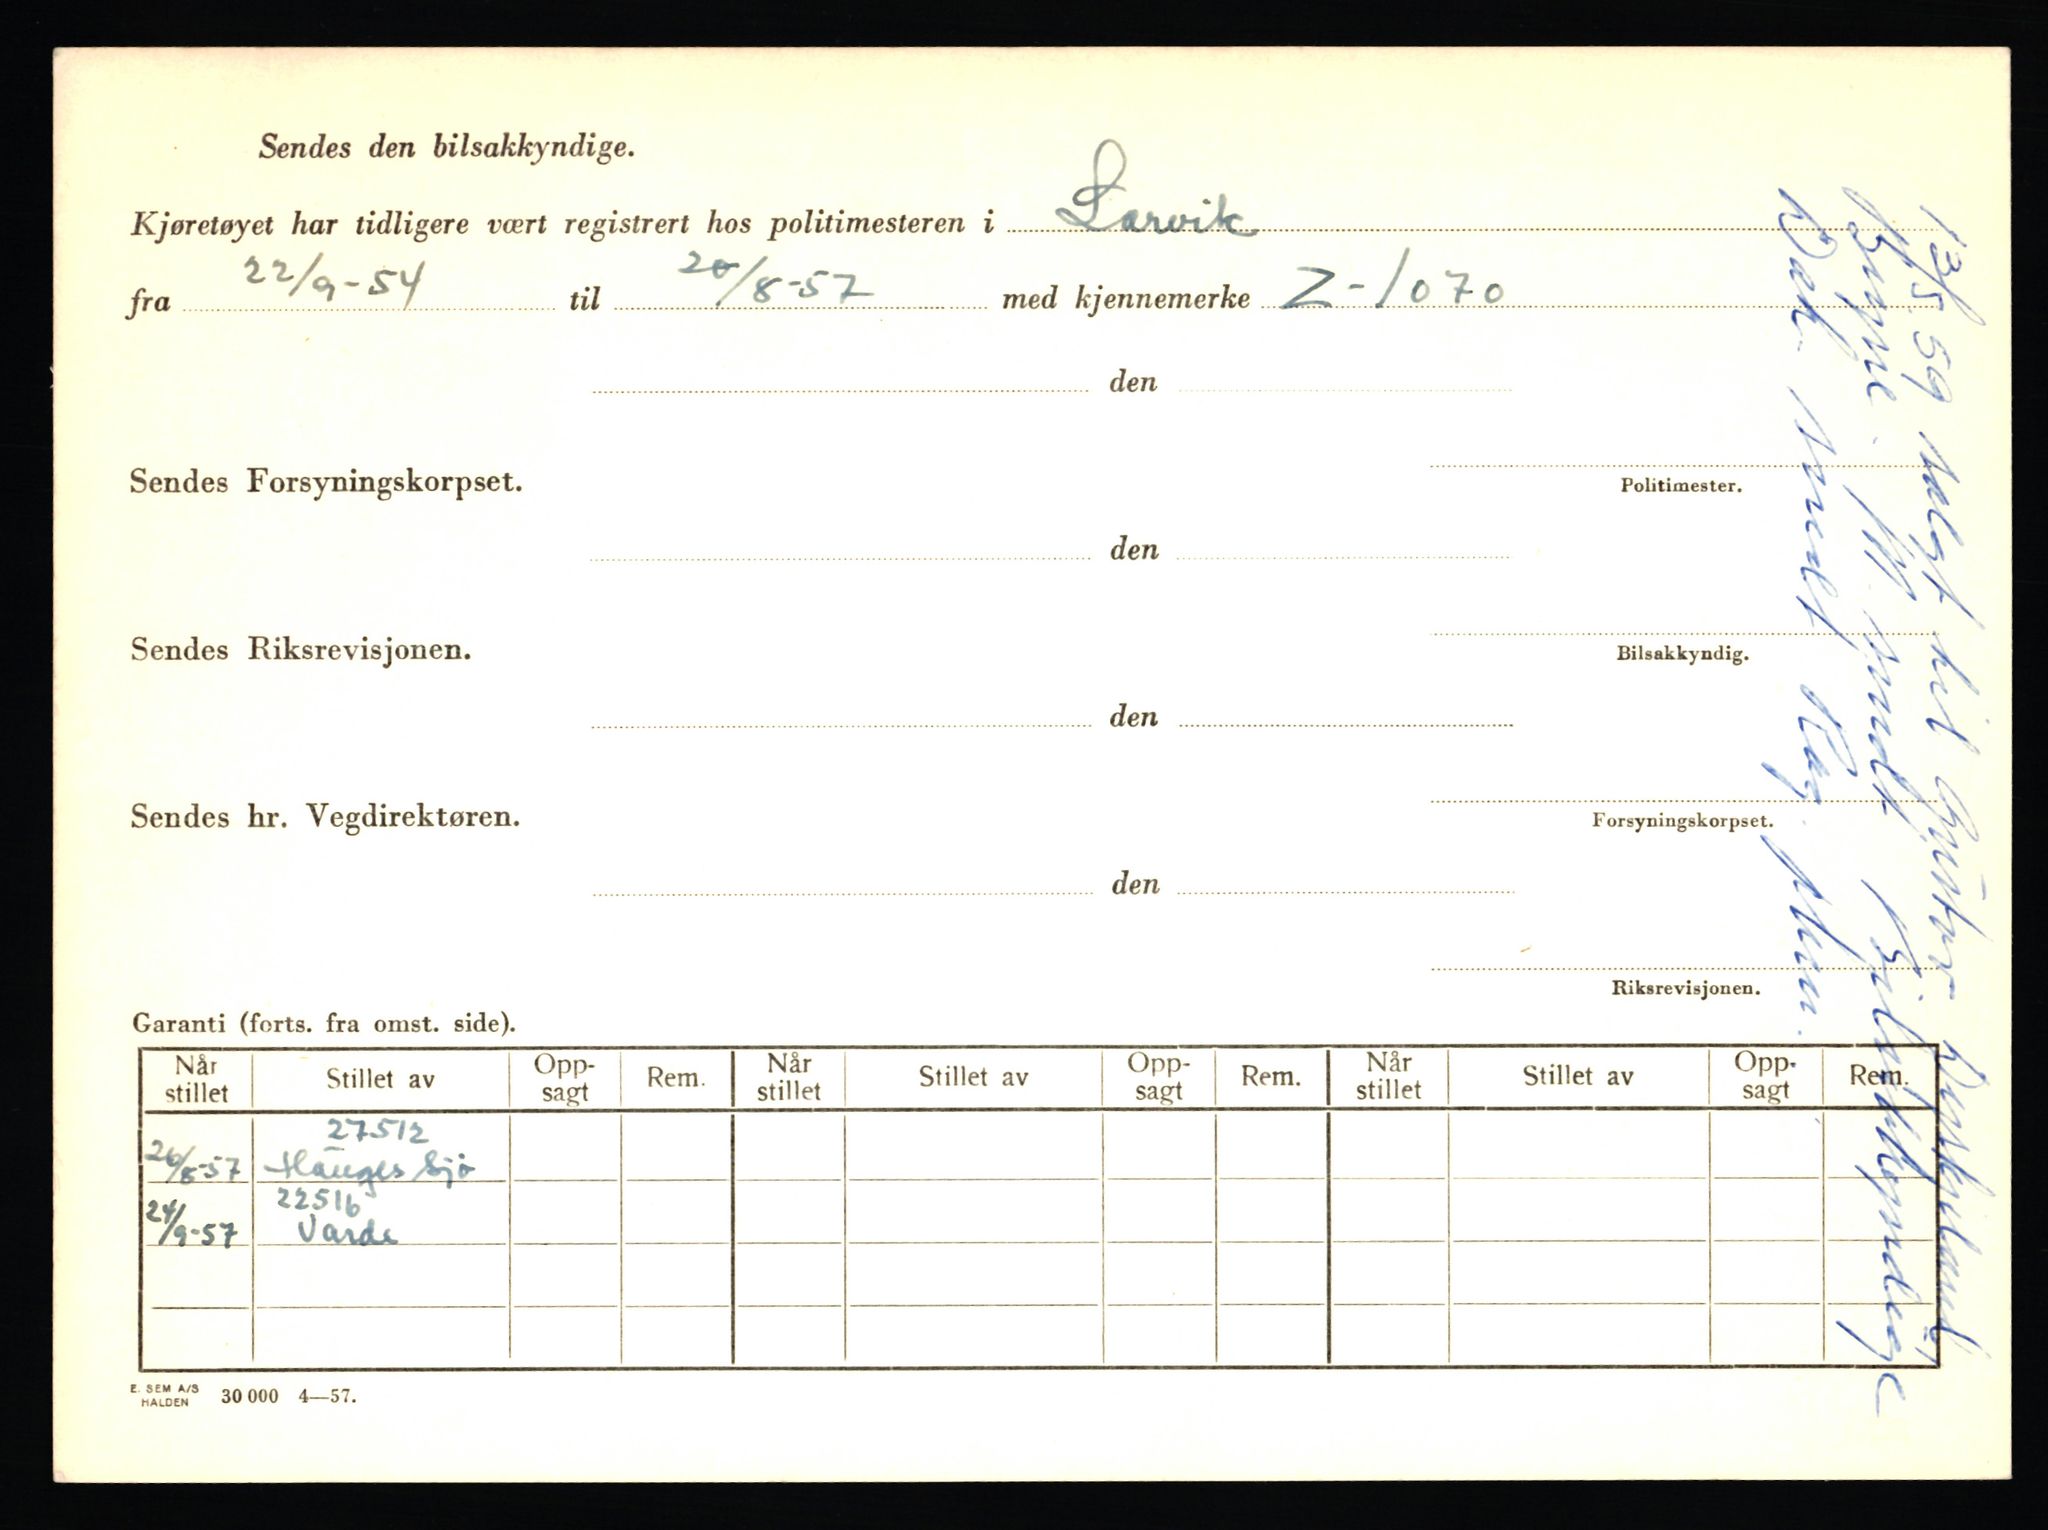 Sendes den bilsakkyndige.
Kjøretøyet har tidligere vært registrert hos politimesteren i Larvik
fra 22/9-54 til 20/8-57 med kjennemerke Z-1070
den
Sendes Forsyningskorpset.
Politimester.
den
Sendes Riksrevisjonen.
Bilsakkyndig.
den
Sendes hr. Vegdirektøren.
Forsyningskorpset.
den
Riksrevisjonen.
Garanti (forts. fra omst. side).
Når stillet Stillet av Opp-sagt Rem. Når stillet Stillet av Opp-sagt Rem. Når stillet Stillet av Opp-sagt Rem.
27512
26/8-57 Hauges Sjø
22516
24/9-57 Varde
E. SEM A/S HALDEN 30 000 4—57.
13/5.59 solgt til
M. sendt Bilsakkyndige
sendt Reg.